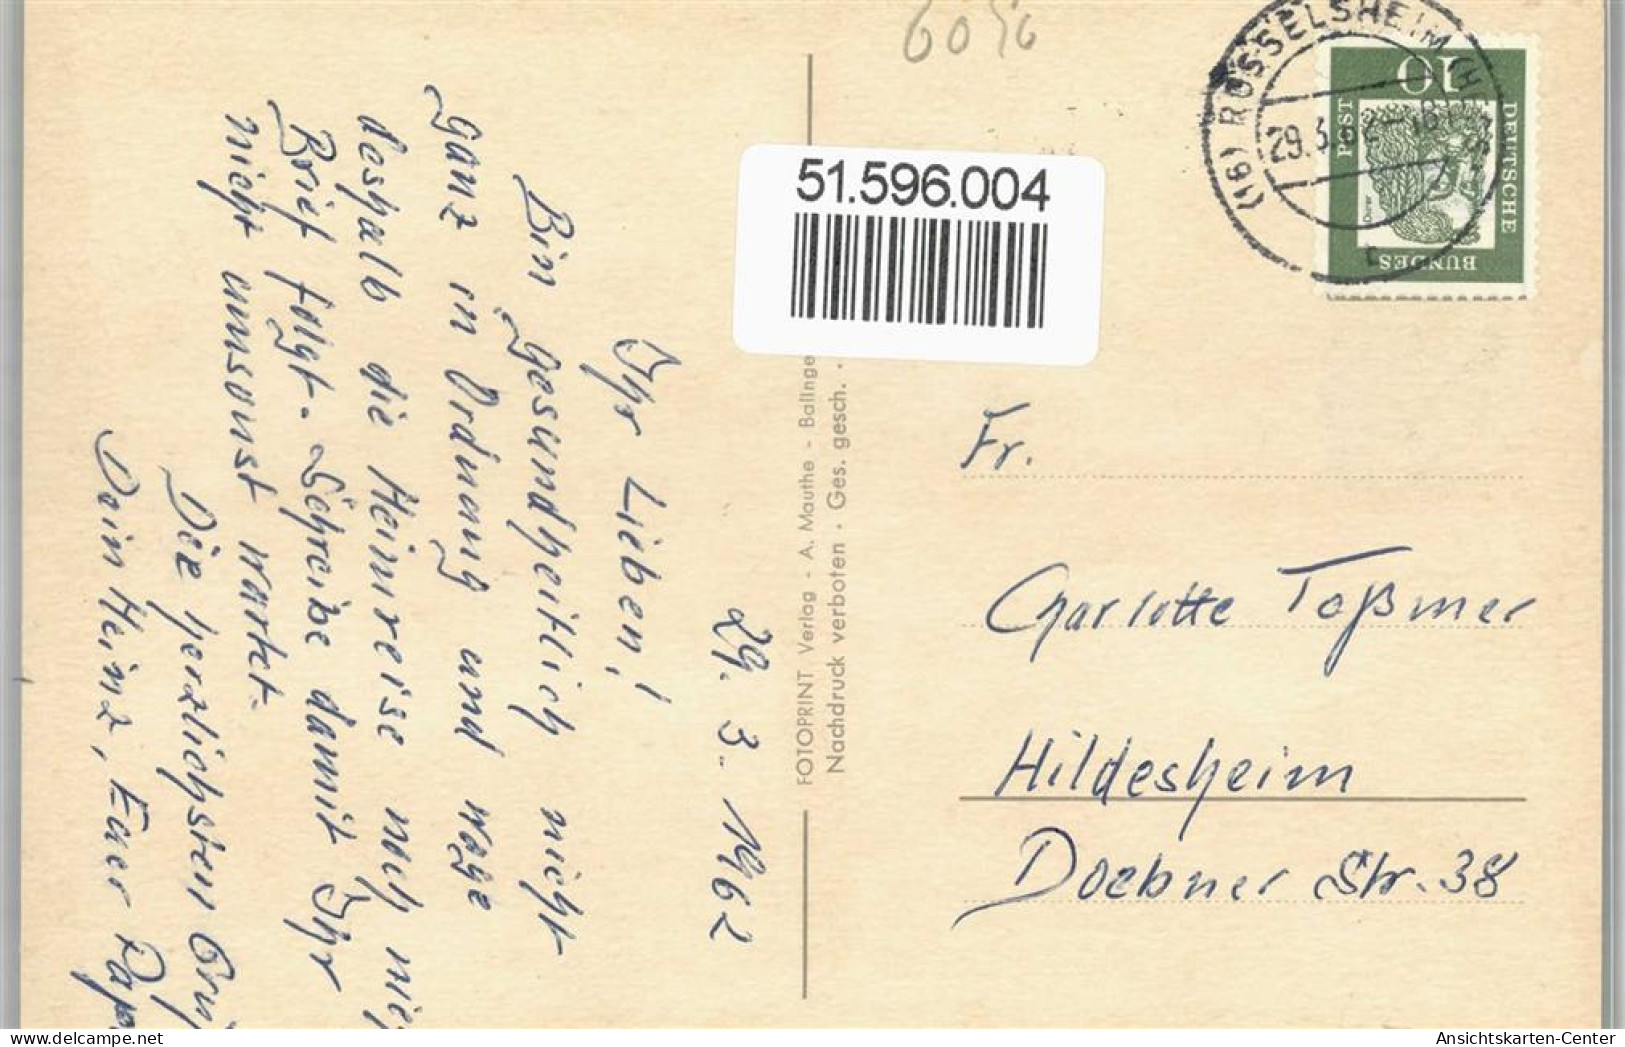 29. 3. 1962
Ihr Lieben!
Bin gesundheitlich nicht
ganz in Ordnung und wage
deshalb die Heimreise noch
Brief folgt. Schreibe damit Ihr
nicht umsonst wartet.
Die herzlichsten
Dein Heinz, Euer
FOTOPRINT Verlag - A. Mauthe - Balinge
Nachdruck verboten · Ges. gesch. ·
51.596.004
(16) RÜSSELSHEIM (H
29.3.
t
10
DEUTSCHE
BUNDES
POST
Dürer
Fr.
Charlotte Toßmer
Hildesheim
Doebner Str. 38
Ansichtskarten-Center